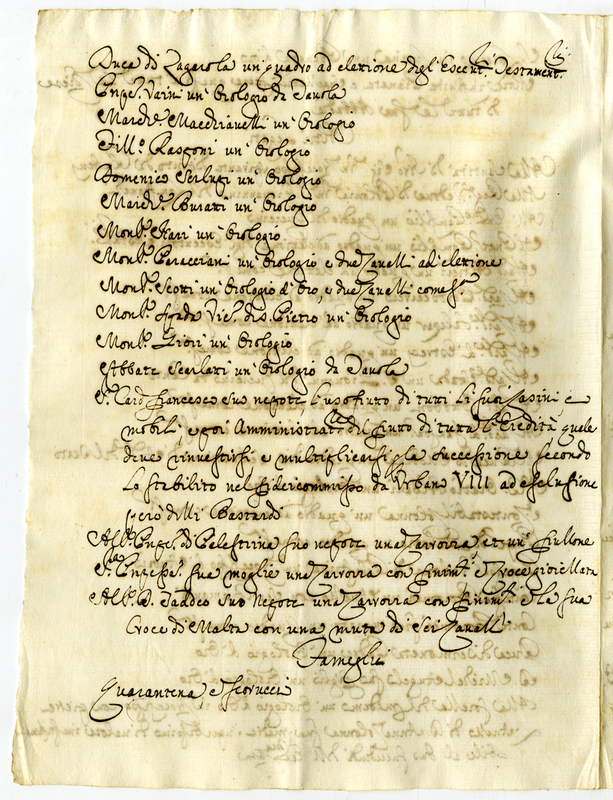 Duca di Zagarola un quadro ad elezione degl' Esecut.ri Testament.rij
Prnpe. Varini un' Orologio da Tavola
March.e Macchiavelli un' Orologio
Fill.o Rasponi un' Orologio
Domenico Serlupi un' Orologio
March.e Buratti un' Orologio
Mons.r un' Orologio
Mons.r Caracciani un' Orologio e due Cavalli ad elezione
Mons.r Scotti un' Orologio d' Oro, e due Cavalli come s.a
Mons.r Vic.o di S. Pietro un' Orologio
Mons.r Giori un' Orologio
Abbate Scarlati un' Orologio da Tavola
S.r Card. Francesco suo nepote l'usofrutto di tutti li suoi Casini, e
mobili, e poi Amministrat.re del frutto di tutta l'Eredità quale
deve rinvestirsi e multiplicarsi p la successione secondo
lo stabilito nel fidercommisso da Urbano VIII ad esclusione
però delli Bastardi
All. Prnpe. di Pelestrina suo nepote una Carrozza, et un' Frullone
S.ra Prnpessa. sua moglie una Carrozza con finim.ti e Croce gioiellata
All. D. Taddeo suo Nepote una Carrozza con finim.ti e la sua
Croce di Malta con una muta di sei Cavalli
Fameglia
Quarantena e Scorucci